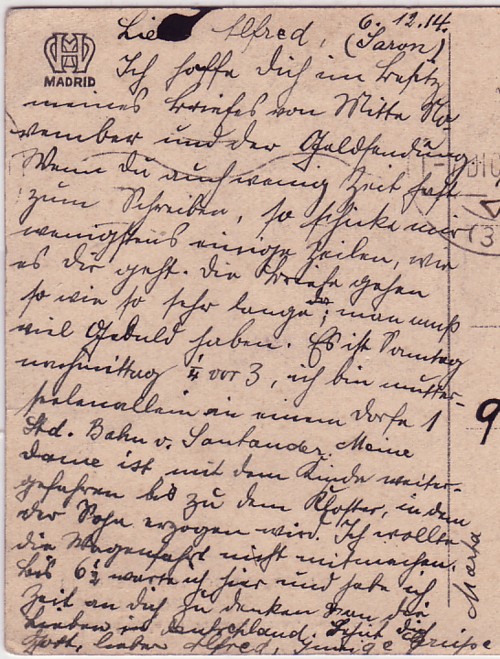 6. 12. 14.
Alfred, (Saron)
MADRID
Ich hoffe Dich im Besitz
meines Briefes von Mitte No-
vember und der Geldsendung.
Wenn Du auch wenig Zeit hast
zum Schreiben, so schicke mir
wenigstens einige Zeilen, wie
es dir geht. Die Briefe gehen
so wie so sehr lange da, man muß
viel Geduld haben. Es ist Sonntag
nachmittag 1/4 vor 3, ich bin mutter-
seelenallein in einem Dorfe 1
Std. Bahn v. Santander. Meine
Dame ist mit dem Kinde weiter-
gefahren bis zu dem Kloster, in dem
der Sohn erzogen wird. Ich wollte
die Wagenfahrt nicht mitmachen.
Bis 6 1/2 warte ich hier und habe ich
Zeit an Dich zu denken die
Lieben in Deutschland. Behüt dich
Gott, lieber Alfred, innige Grüsse
Marta
9